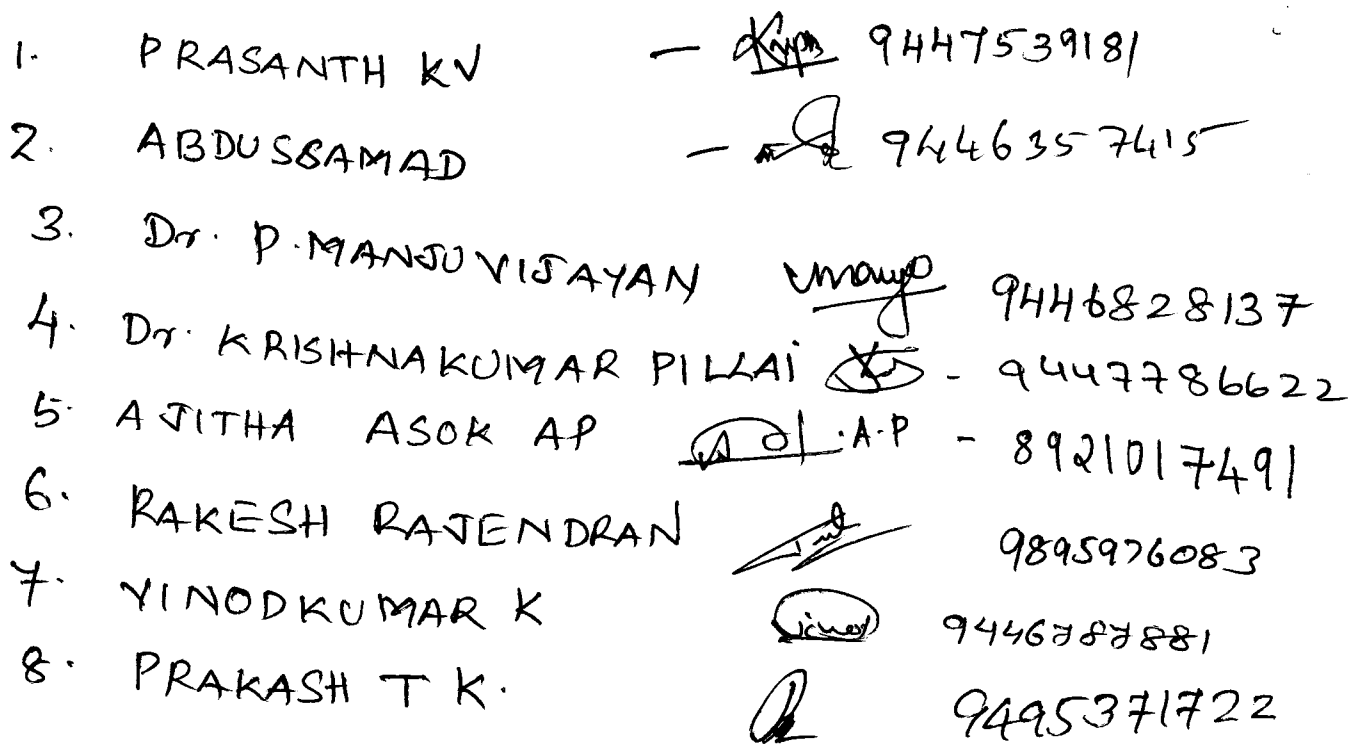 1. PRASANTH KV - 9447539181
2. ABDUSSAMAD - 9446357415
3. Dr. P. MANJU VIJAYAN 9446828137
4. Dr. KRISHNAKUMAR PILLAI - 9447786622
5. AJITHA ASOK AP .A.P - 8921017491
6. RAKESH RAJENDRAN 9895976083
7. VINODKUMAR K 9446787881
8. PRAKASH T K. 9495371722